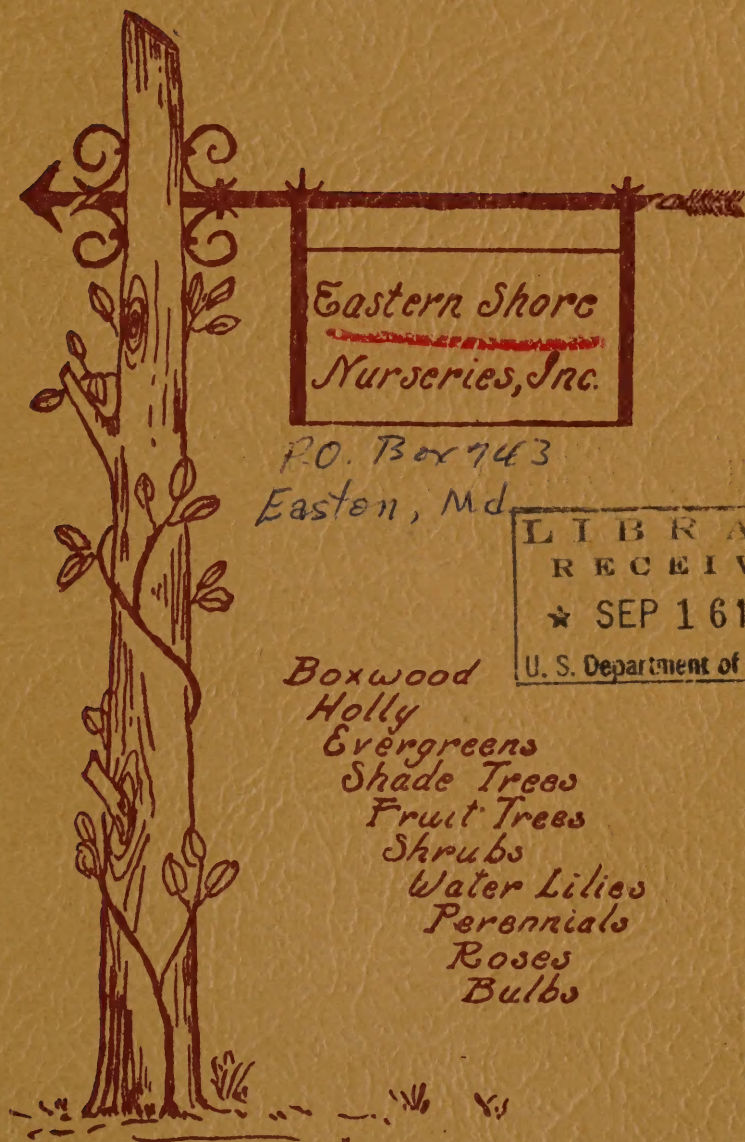 Eastern Shore
Nurseries, Inc.
P.O. Box 743
Easton, Md.
LIBRA
RECEIV
★ SEP 1 6 1
U. S. Department of
Boxwood
Holly
Evergreens
Shade Trees
Fruit Trees
Shrubs
Water Lilies
Perennials
Roses
Bulbs